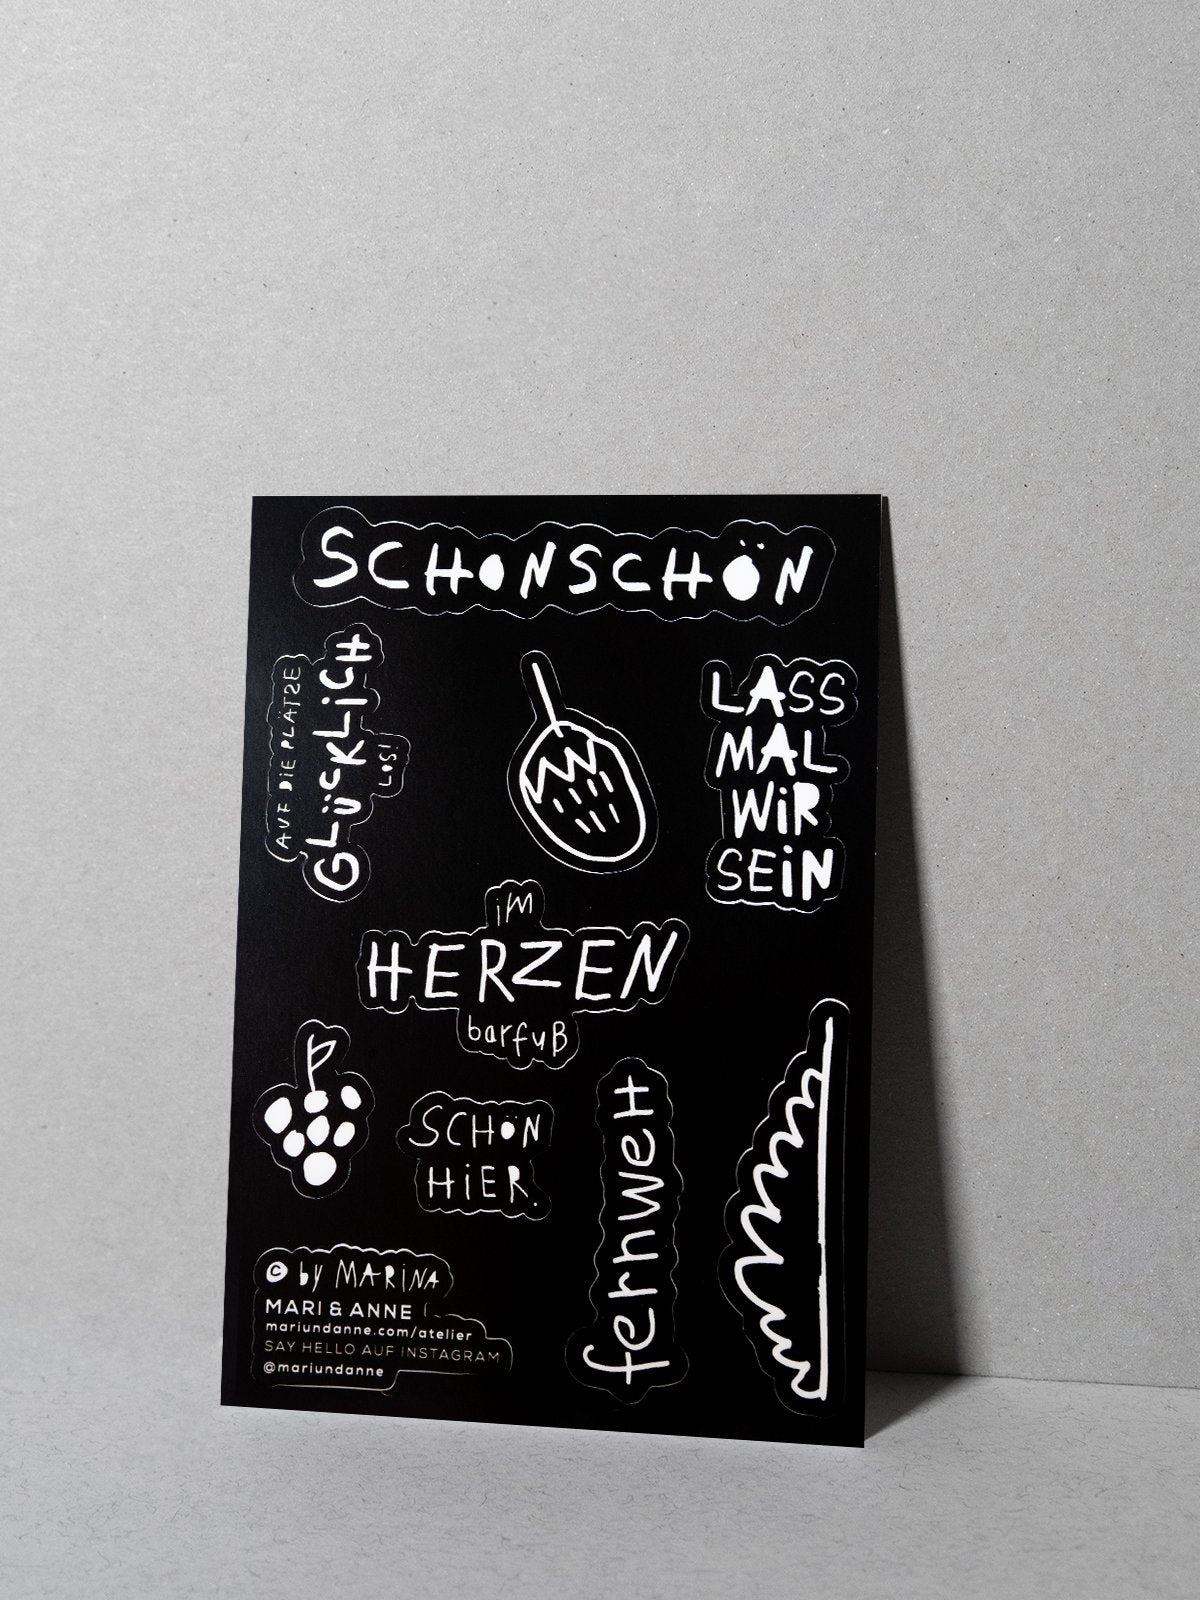 SCHONSCHÖN
AUF DIE PLÄTZE
GLÜCKLICH
LOS!
LASS
MAL
WiR
SEiN
iM
HERZEN
barfuß
SCHÖN
HiER.
fernweH
© by MARiNA
MARI & ANNE
mariundanne.com/atelier
SAY HELLO AUF INSTAGRAM
@mariundanne